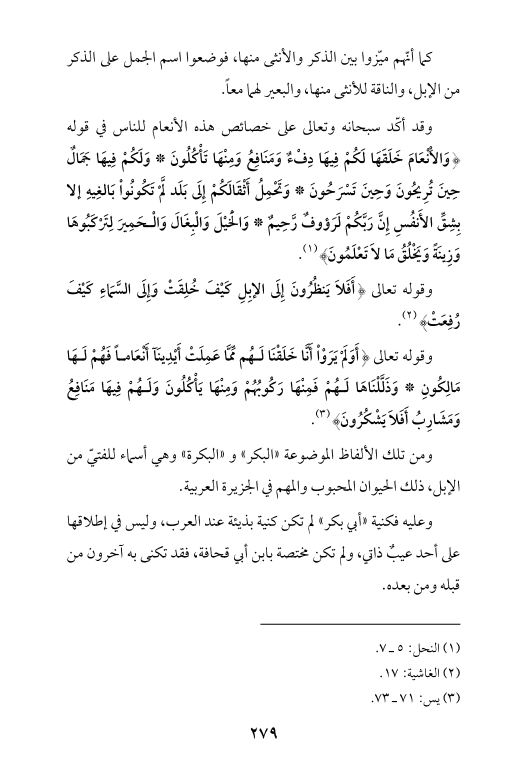 كما أنّهم ميّزوا بين الذكر والأنثى منها، فوضعوا اسم الجمل على الذكر
من الإبل، والناقة للأنثى منها، والبعير لهما معاً.
وقد أكّد سبحانه وتعالى على خصائص هذه الأنعام للناس في قوله
﴿وَالأَنْعَامَ خَلَقَهَا لَكُمْ فِيهَا دِفْءٌ وَمَنَافِعُ وَمِنْهَا تَأْكُلُونَ * وَلَكُمْ فِيهَا جَمَالٌ
حِينَ تُرِيحُونَ وَحِينَ تَسْرَحُونَ * وَتَحْمِلُ أَثْقَالَكُمْ إِلَى بَلَد لَّمْ تَكُونُواْ بَالغِيهِ إلا
بِشِقِّ الأَنفُسِ إِنَّ رَبَّكُمْ لَرَؤُوفٌ رَّحِيمٌ * وَالْخَيْلَ وَالْبِغَالَ وَالْـحَمِيرَ لِتَرْكَبُوهَا
وَزِينَةً وَيَخْلُقُ مَا لاَ تَعْلَمُونَ﴾(١).
وقوله تعالى ﴿أَفَلاَ يَنظُرُونَ إِلَى الإبِلِ كَيْفَ خُلِقَتْ وَإِلَى السَّمَاءِ كَيْفَ
رُفِعَتْ﴾(٢).
وقوله تعالى ﴿أَوَلَمْ يَرَوْاْ أَنَّا خَلَقْنَا لَـهُم مِّمَّا عَمِلَتْ أَيْدِينَآ أَنْعَامـاً فَهُمْ لَـهَا
مَالِكُونِ * وَذَلَّلْنَاهَا لَـهُمْ فَمِنْهَا رَكُوبُهُمْ وَمِنْهَا يَأْكُلُونَ وَلَـهُمْ فِيهَا مَنَافِعُ
وَمَشَارِبُ أَفَلاَ يَشْكُرُونَ﴾(٣).
ومن تلك الألفاظ الموضوعة «البكر» و «البكرة» وهي أسماء للفتيّ من
الإبل، ذلك الحيوان المحبوب والمهم في الجزيرة العربية.
وعليه فكنية «أبي بكر» لم تكن كنية بذيئة عند العرب، وليس في إطلاقها
على أحد عيبٌ ذاتي، ولم تكن مختصة بابن أبي قحافة، فقد تكنى به آخرون من
قبله ومن بعده.
(١) النحل: ٥ ـ ٧.
(٢) الغاشية: ١٧.
(٣) يس: ٧١ ـ ٧٣.
٢٧٩